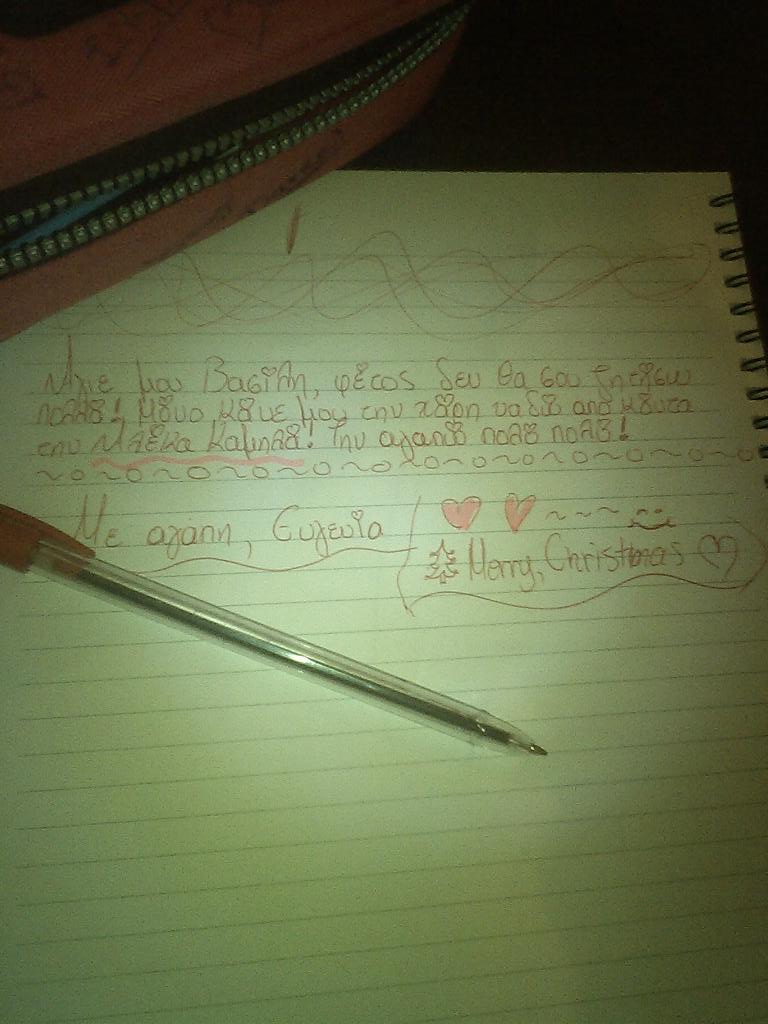 Άγιε μου Βασίλη, φέτος δεν θα σου ζητήσω
πολλά! Μόνο κάνε μου την χάρη να δω από κοντά
την Μελίνα Καμπλά! Την αγαπώ πολύ πολύ!
Με αγάπη, Ευγενία
Merry, Christmas